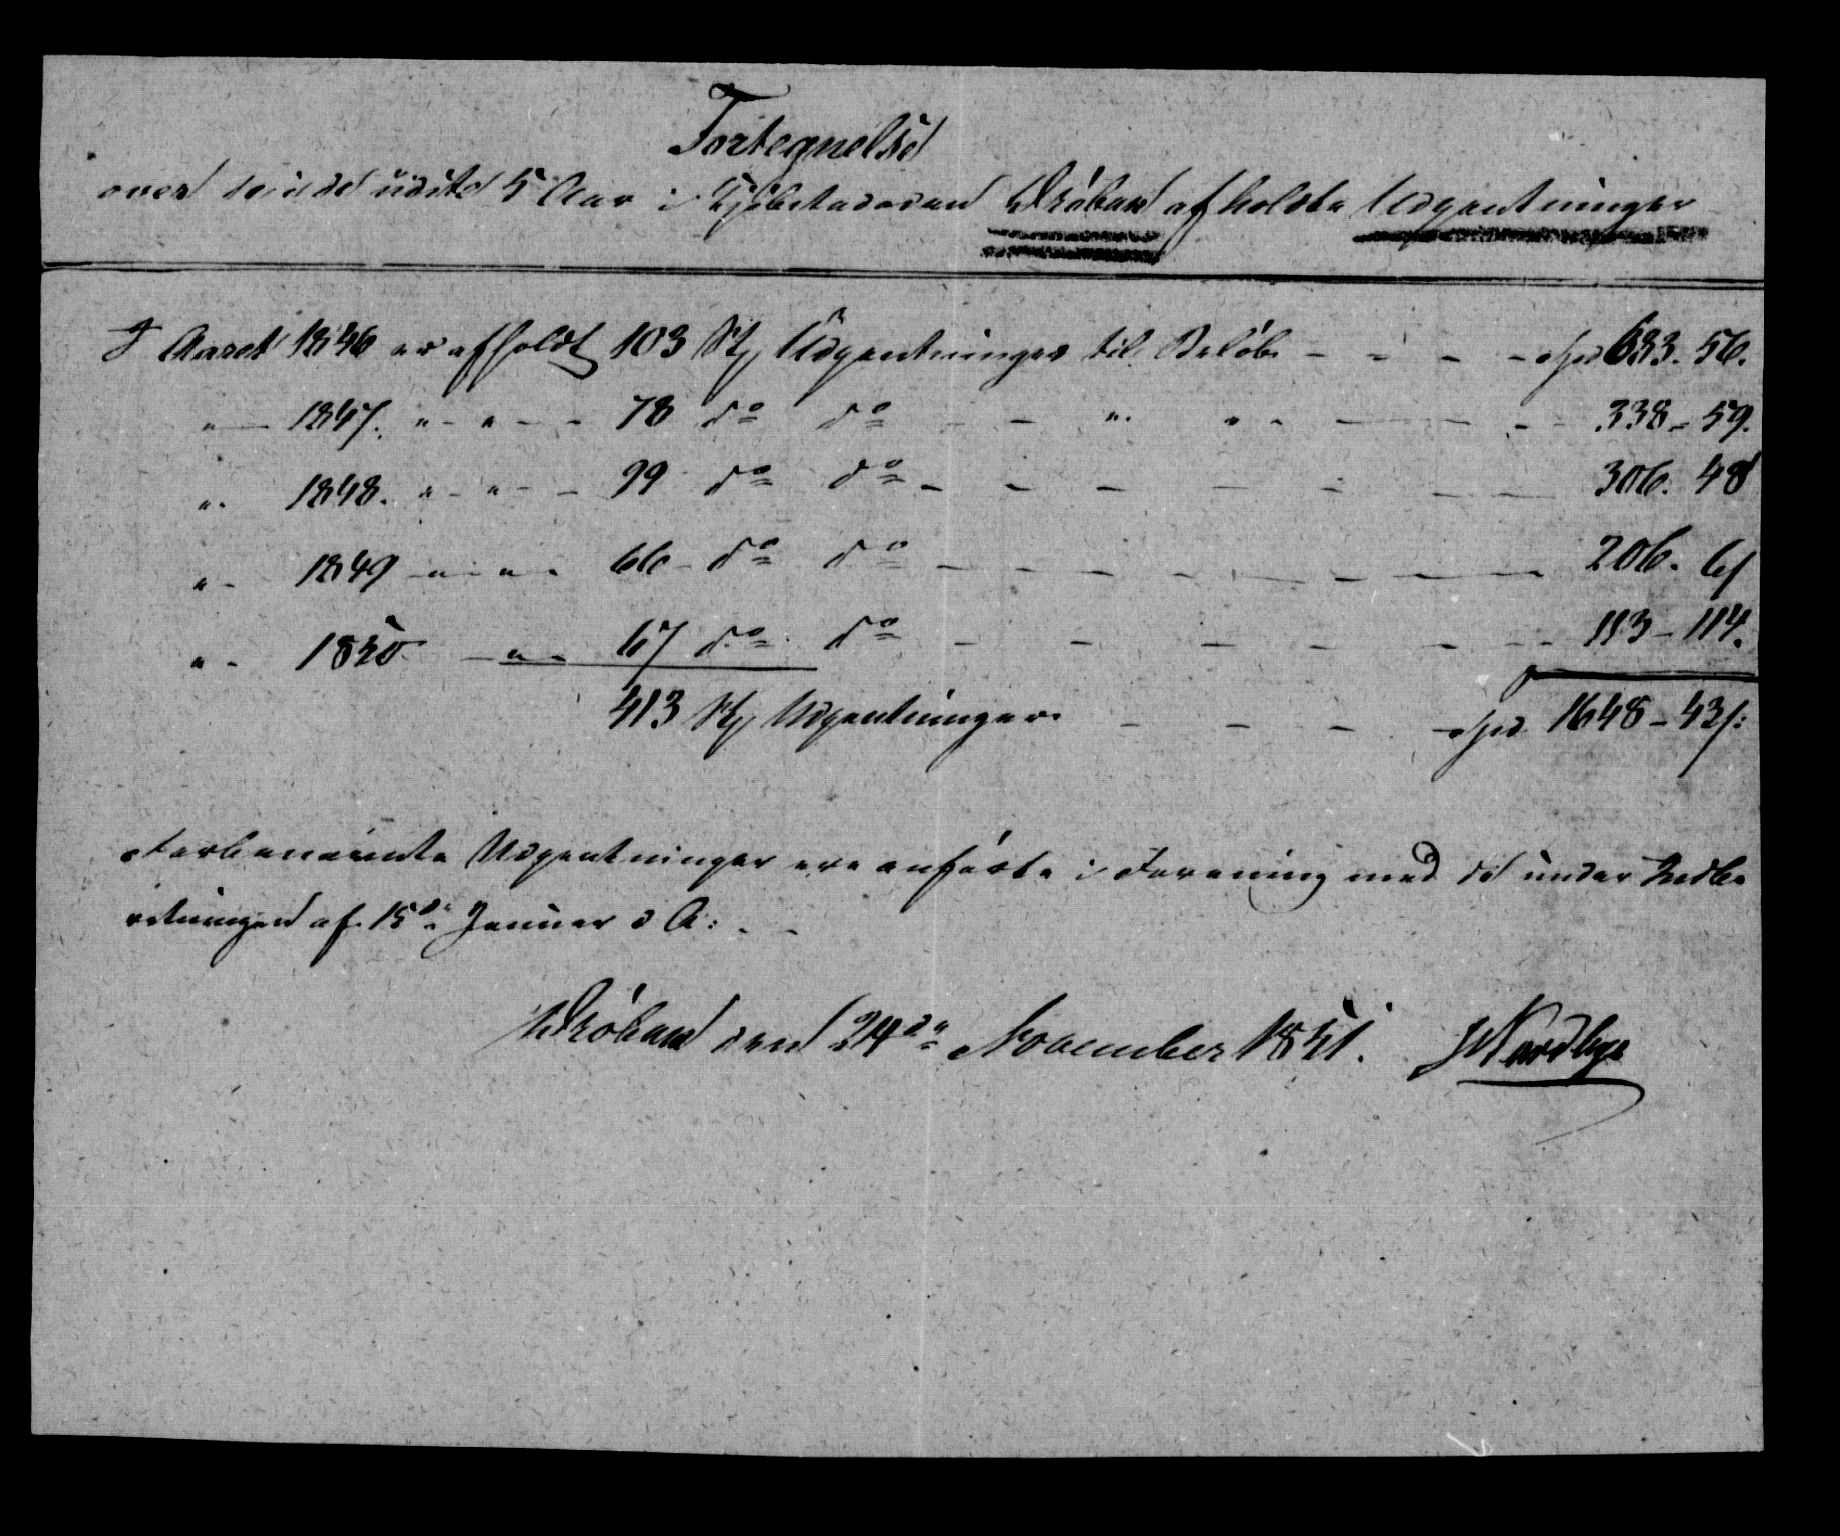 Fortegnelse
over de i de sidste 5 Aar i Kjøbstæden Drøbak afholdte Udpantninger
I Aaret 1846 er afholdt 103 Stk Udpantninger til Beløb - - - - Spd 683. 56.
" - 1847. " - " - - 78 do do - - " " - - - - - 338 - 59.
" - 1848. " - " - - 99 do do - - - - - - - 306. 48
" - 1849 - " - " - 66 - do do - - - - - - - - 206. 6
" - 1850 - " - 67 do do - - - - - - - 113 - 114.
413 Stk Udpantninger. - - - - Spd 1648 - 43 s:
Udpantninger ere anførte i Forening med de under Indbe
retningen af 15de Januar d A: - -
Drøbak den 24de November 1851. Nordbye